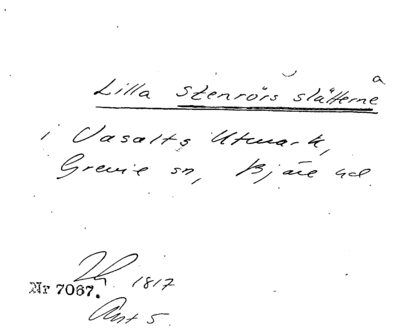 Lilla Stenrörs slätterne
a
i Vasalts Utmark,
Grevie sn, Bjäre hd.
1817
Nr 7067.
Akt 5.